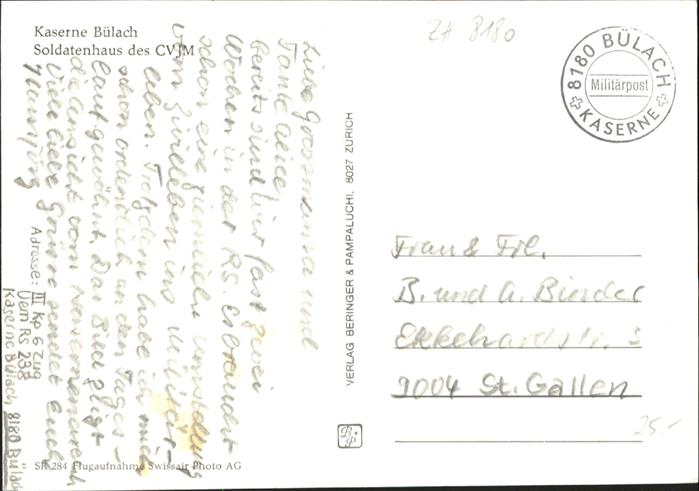 Kaserne Bülach
Soldatenhaus des CVJM
ZH 8180
8180 BÜLACH
Militärpost
KASERNE
Liebe Grossmama und
Tante Alice
bereits sind wir fast zwei
Wochen in der RS. Es braucht
schon eine ziemliche Umstellung
vom Zivilleben ins Militär-
leben. Trotzdem habe ich mich
schon ordentlich an den Tages-
lauf gewöhnt. Das Bild zeigt
die Ansicht vom Kasernenareal
Viele liebe Grüsse sendet euch
Hansjürg
Adresse: III Kp 6 Zug
Uem RS 238
Kaserne Bülach 8180 Bülach
VERLAG BERINGER & PAMPALUCHI, 8027 ZÜRICH
Frau & Frl.
B. und A. Binder
Ekkehardstr. 3
9004 St. Gallen
25.-
B+P
SR 284 Flugaufnahme Swissair Photo AG